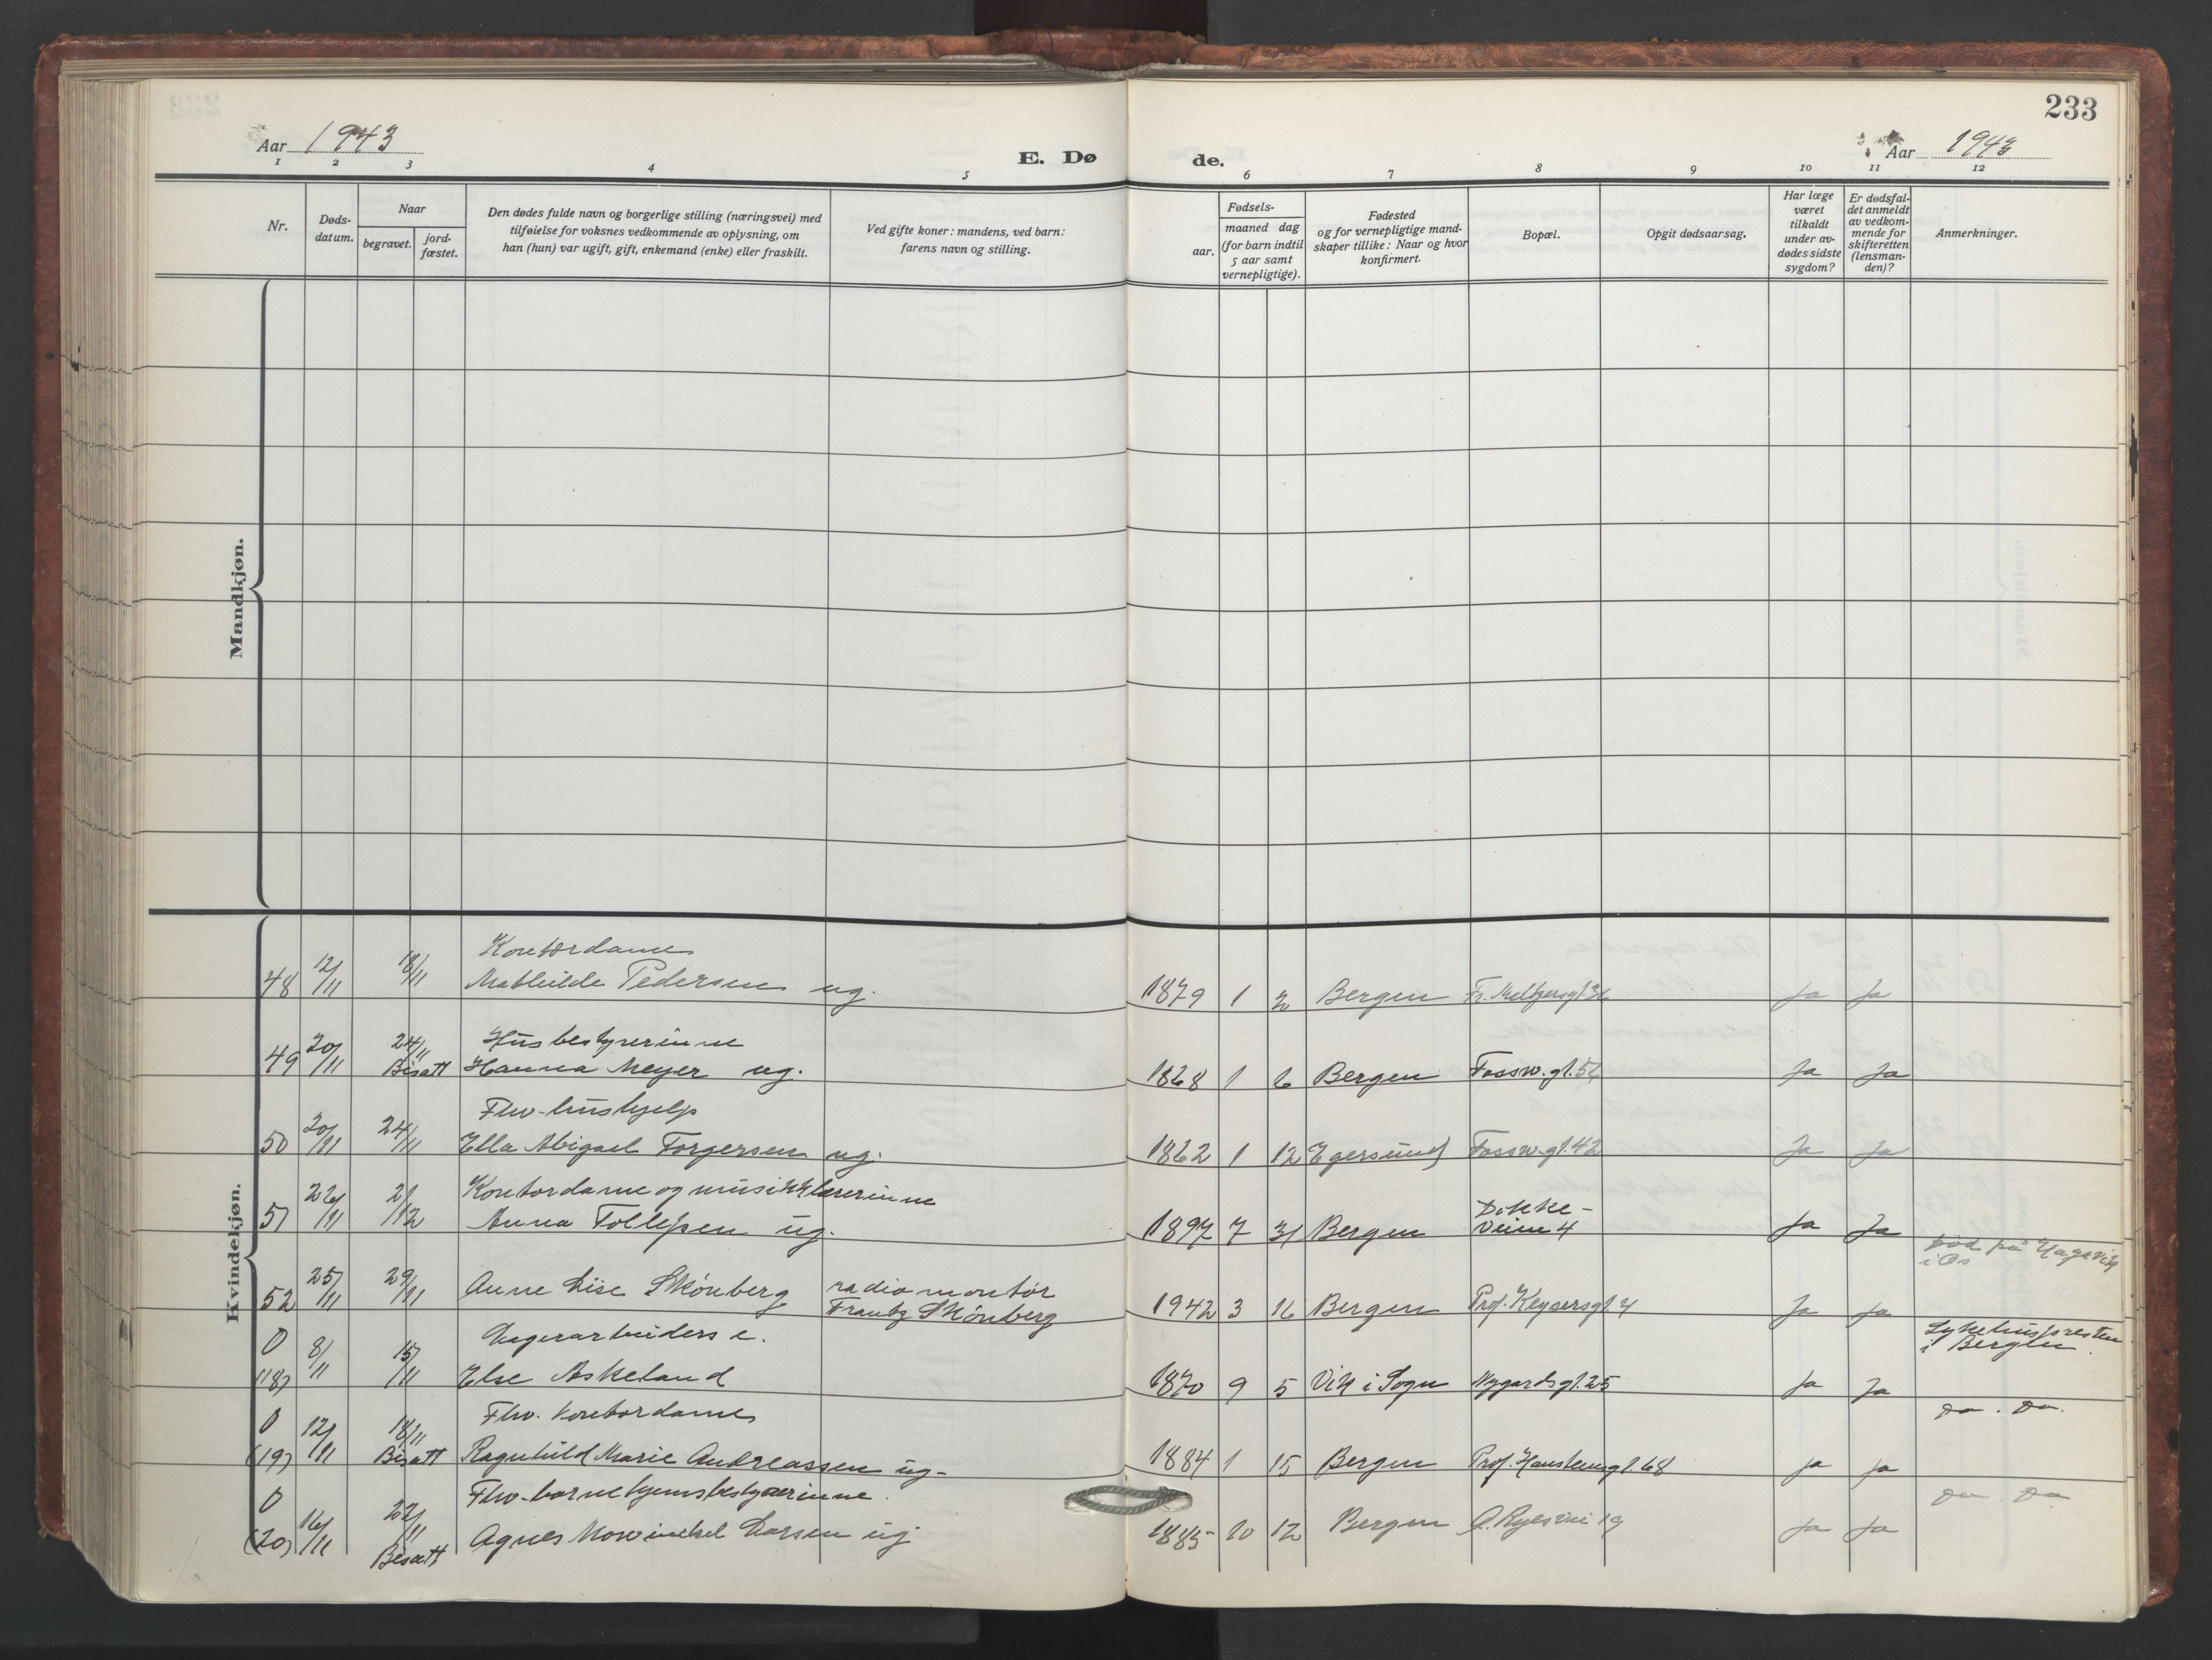 233
Aar 1943
E. Dø de.
Aar 1943
1 2 3 4 5 6 7 8 9 10 11 12
Nr.
Døds-
datum.
Naar
begravet.
jord-
fæstet.
Den dødes fulde navn og borgerlige stilling (næringsvei) med
tilføielse for voksnes vedkommende av oplysning, om
han (hun) var ugift, gift, enkemand (enke) eller fraskilt.
Ved gifte koner: mandens, ved barn:
farens navn og stilling.
Fødsels-
aar.
maaned dag
(for barn indtil
5 aar samt
vernepligtige).
Fødested
og for vernepligtige mand-
skaper tillike: Naar og hvor
konfirmert.
Bopæl.
Opgit dødsaarsag.
Har læge
været
tilkaldt
under av-
dødes sidste
sygdom?
Er dødsfal-
det anmeldt
av vedkom-
mende for
skifteretten
(lensman-
den)?
Anmerkninger.
Mandkjøn.
Kvindekjøn.
Kontordame
48 12/11 18/11 Mathilde Pedersen ug. 1879 1 2 Bergen Fr. Meltzersgt. Ja Ja
Husbestyrerinne
49 20/11 24/11 Bisatt Hanna Meyer ug. 1868 1 6 Bergen Fossw.gt. Ja Ja
Fhv. hushjelp
50 20/11 24/11 Ella Abigael Torgersen ug. 1862 1 12 Egersund Fossw.gt. 42 Ja Ja
Kontordame og musikklærerinne
51 26/11 2/12 Anna Tollefsen ug. 1897 7 31 Bergen Dokke-
veien 4 Ja Ja
død på Hagavik
i Os
52 25/11 29/11 Anne Lise Skönberg radiomontör
Frantz Skönberg 1942 3 16 Bergen Prof. Keysersgt. 4 Ja Ja
Lagerarbeiders e.
0 (18) 8/11 15/11 Else Askeland 1870 9 5 Vik i Sogn Nygardsgt. 25 Ja Ja
Sykehuspresten
i Bergen.
Fhv. kontordame
0 (19) 12/11 18/11 Bisatt Ragnhild Marie Andreassen ug. 1884 1 15 Bergen Prof. Hansteensgt. 68 Ja Ja
Do. Do.
Fhv. barnehjemsbestyrerinne.
0 (20) 16/11 22/11 Bisatt Agnes Mowinckel Larsen ug. 1885 10 12 Bergen O. Ryesvei 19 Ja Ja
Do. Do